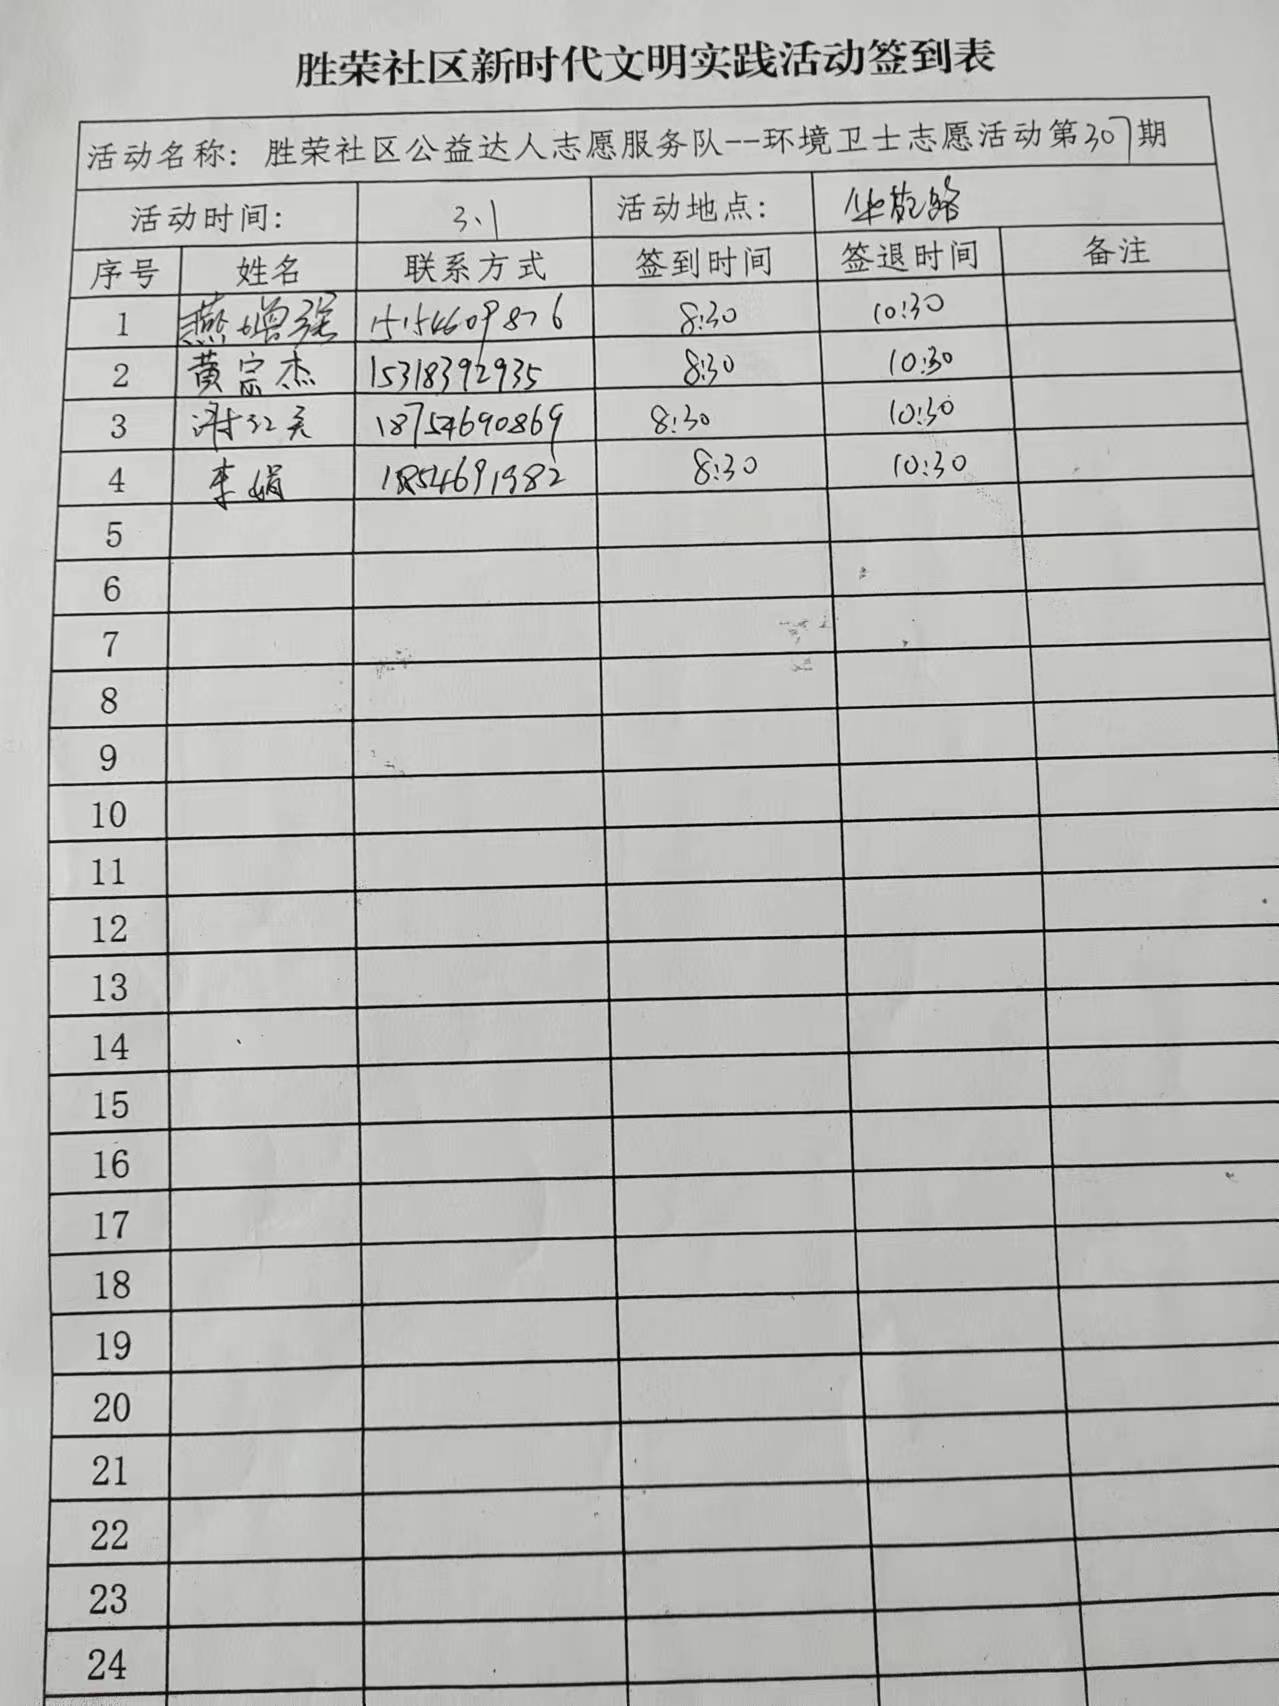 胜荣社区新时代文明实践活动签到表
活动名称: 胜荣社区公益达人志愿服务队--环境卫士志愿活动第307期
活动时间: 3.1 活动地点: 华龙路
序号 姓名 联系方式 签到时间 签退时间 备注
1 燕增强 15154609876 8:30 10:30
2 黄宗杰 15318392935 8:30 10:30
3 谢红关 18754690869 8:30 10:30
4 李娟 8:30 10:30
5
6
7
8
9
10
11
12
13
14
15
16
17
18
19
20
21
22
23
24